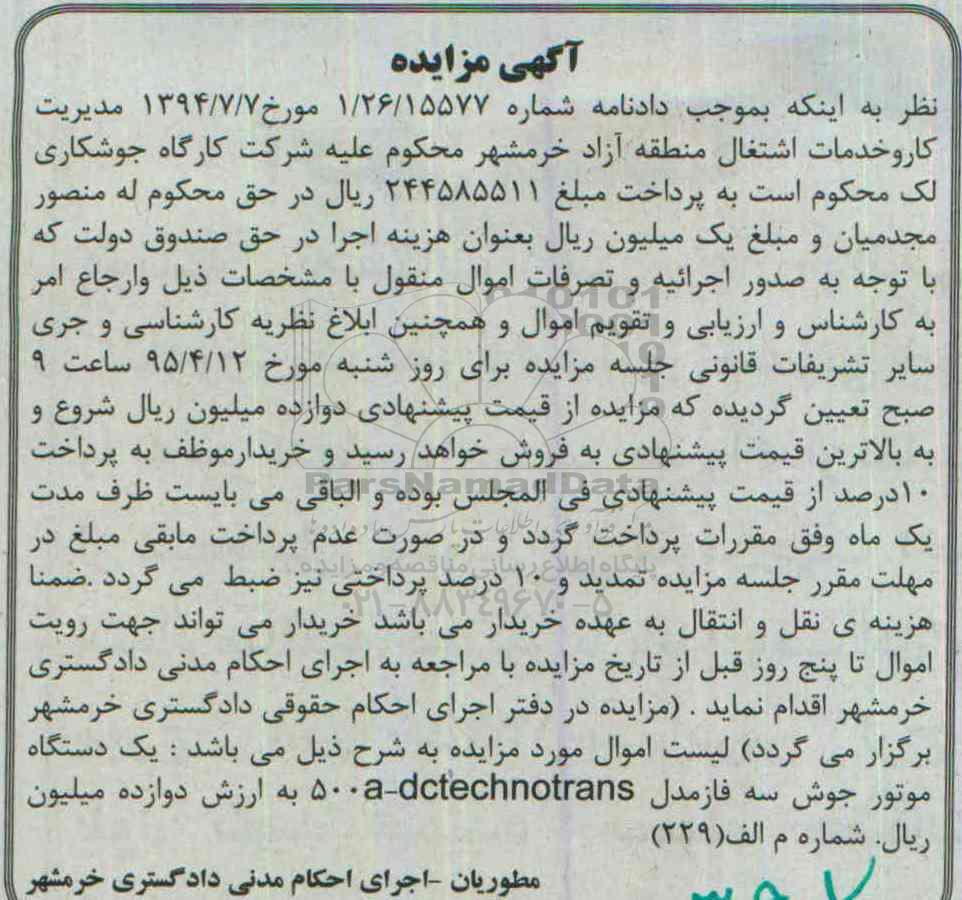 آگهی مزایده
نظر به اینکه بموجب دادنامه شماره ۱/۲۶/۱۵۵۷۷ مورخ۱۳۹۴/۷/۷ مدیریت
کاروخدمات اشتغال منطقه آزاد خرمشهر محکوم علیه شرکت کارگاه جوشکاری
لک محکوم است به پرداخت مبلغ ۲۴۴۵۸۵۵۱۱ ریال در حق محکوم له منصور
مجدمیان و مبلغ یک میلیون ریال بعنوان هزینه اجرا در حق صندوق دولت که
با توجه به صدور اجرائیه و تصرفات اموال منقول با مشخصات ذیل وارجاع امر
به کارشناس و ارزیابی و تقویم اموال و همچنین ابلاغ نظریه کارشناسی و جری
سایر تشریفات قانونی جلسه مزایده برای روز شنبه مورخ ۹۵/۴/۱۲ ساعت ۹
صبح تعیین گردیده که مزایده از قیمت پیشنهادی دوازده میلیون ریال شروع و
به بالاترین قیمت پیشنهادی به فروش خواهد رسید و خریدارموظف به پرداخت
ParsNamadData
۱۰درصد از قیمت پیشنهادی فی المجلس بوده و الباقی می بایست ظرف مدت
یک ماه وفق مقررات پرداخت گردد و در صورت عدم پرداخت مابقی مبلغ در
پایگاه اطلاع رسانی مناقصه و مزایده
مهلت مقرر جلسه مزایده تمدید و ۱۰ درصد پرداختی نیز ضبط می گردد .ضمنا
۰۲۱-۸۸۳۴۹۶۷۰-۵
هزینه ی نقل و انتقال به عهده خریدار می باشد خریدار می تواند جهت رویت
اموال تا پنج روز قبل از تاریخ مزایده با مراجعه به اجرای احکام مدنی دادگستری
خرمشهر اقدام نماید . (مزایده در دفتر اجرای احکام حقوقی دادگستری خرمشهر
برگزار می گردد) لیست اموال مورد مزایده به شرح ذیل می باشد : یک دستگاه
موتور جوش سه فازمدل ۵۰۰a-dctechnotrans به ارزش دوازده میلیون
ریال. شماره م الف(۲۲۹)
مطوریان -اجرای احکام مدنی دادگستری خرمشهر